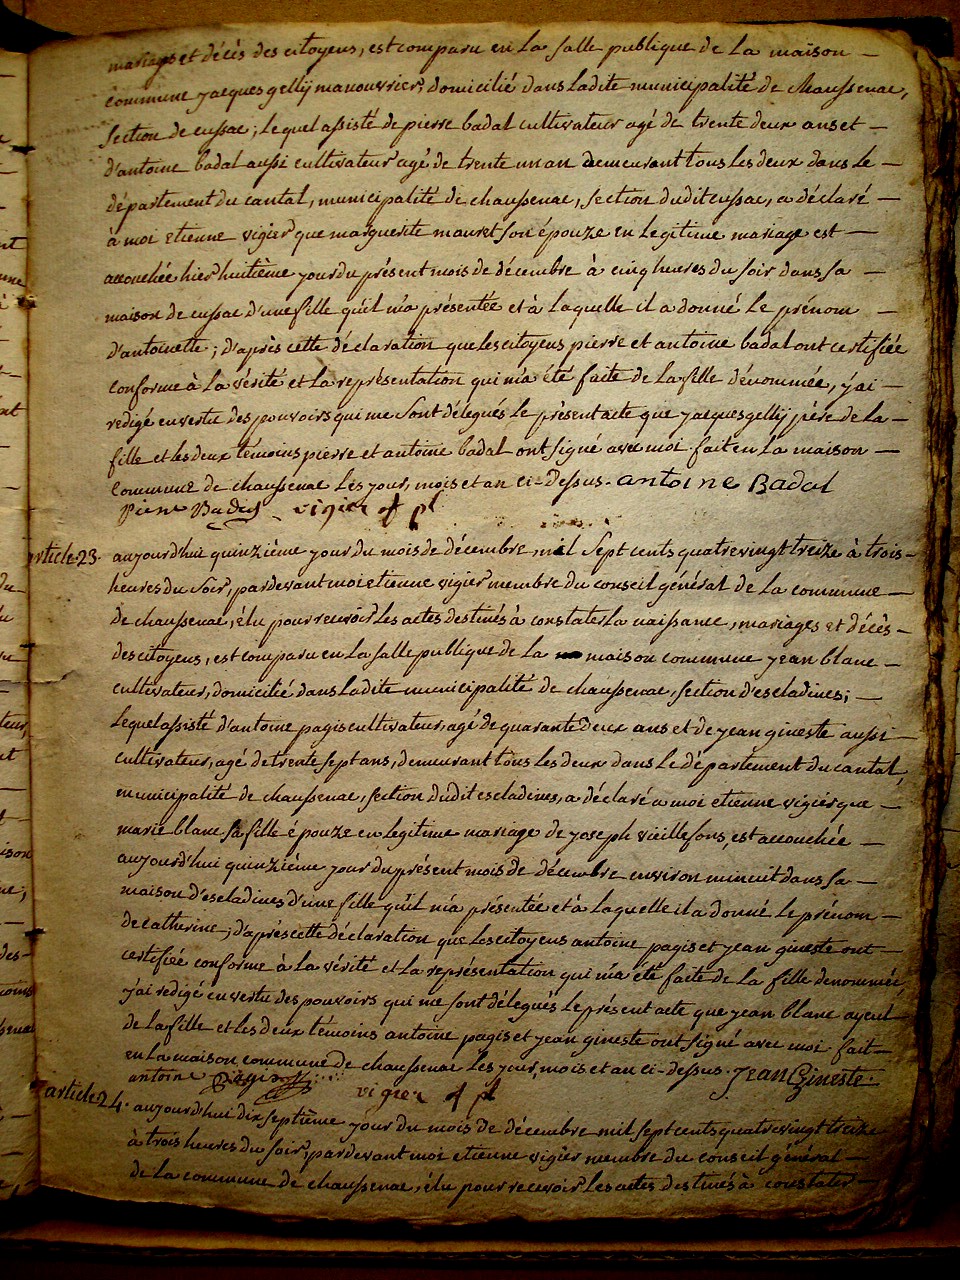 mariages et décès des citoyens, est comparu en la salle publique de la maison —
commune jacques gellij manouvrier, domicilié dans ladite municipalité de chaussenac,
section de cussac; lequel assisté de pierre badal cultivateur agé de trente deux ans et —
d'antoine badal aussi cultivateur agé de trente un an demeurant tous les deux dans le —
département du cantal, municipalité de chaussenac, section dudit cussac, a déclaré —
à moi etienne vigier que marguerite mauret son épouze en legitime mariage est —
accouchée hier huitième jour du présent mois de décembre à cinq heures du soir dans sa —
maison de cussac d'une fille qu'il m'a présentée et à laquelle il a donné le prénom —
d'antoinette; d'après cette déclaration que les citoyens pierre et antoine badal ont certifiée
conforme à la vérité et la représentation qui m'a été faite de la fille dénommée, j'ai —
redigé en vertu des pouvoirs qui me sont délegués le présent acte que jacques gellij père de la —
fille et les deux témoins pierre et antoine badal ont signé avec moi. fait en la maison —
commune de chaussenac les jour, mois et an ci-dessus. antoine Badal
Pierre Badal vigier
article 23. aujourd'hui quinzième jour du mois de décembre mil sept cents quatrevingt treize à trois —
heures du soir, pardevant moi etienne vigier membre du conseil général de la commune —
de chaussenac, élu pour recevoir les actes destinés à constater la naissance, mariages et décès —
des citoyens, est comparu en la salle publique de la maison commune jean blanc —
cultivateur, domicilié dans ladite municipalité de chaussenac, section d'escladines; —
lequel assisté d'antoine pagis cultivateur, agé de quarante deux ans et de jean gineste aussi —
cultivateur, agé de trente sept ans, demeurant tous les deux dans le département du cantal,
municipalité de chaussenac, section dudit escladines, a déclaré a moi etienne vigier que —
marie blanc sa fille épouze en legitime mariage de joseph vieillefons, est accouchée —
aujourd'hui quinzième jour du présent mois de décembre environ minuit dans sa —
maison d'escladines d'une fille qu'il m'a présentée et à laquelle il a donné le prénom —
de catherine; d'après cette déclaration que les citoyens antoine pagis et jean gineste ont —
certifiée conforme à la vérité et la représentation qui m'a été faite de la fille denommée,
j'ai redigé en vertu des pouvoirs qui me sont délegués le présent acte que jean blanc ayeul —
de la fille et les deux témoins antoine pagis et jean gineste ont signé avec moi. fait —
en la maison commune de chaussenac les jour, mois et an ci-dessus. Jean Gineste.
antoine Pagis vigier
article 24. aujourd'hui dix septième jour du mois de décembre mil sept cents quatrevingt treize
à trois heures du soir, pardevant moi etienne vigier membre du conseil général —
de la commune de chaussenac, élu pour recevoir les actes destinés à constater —